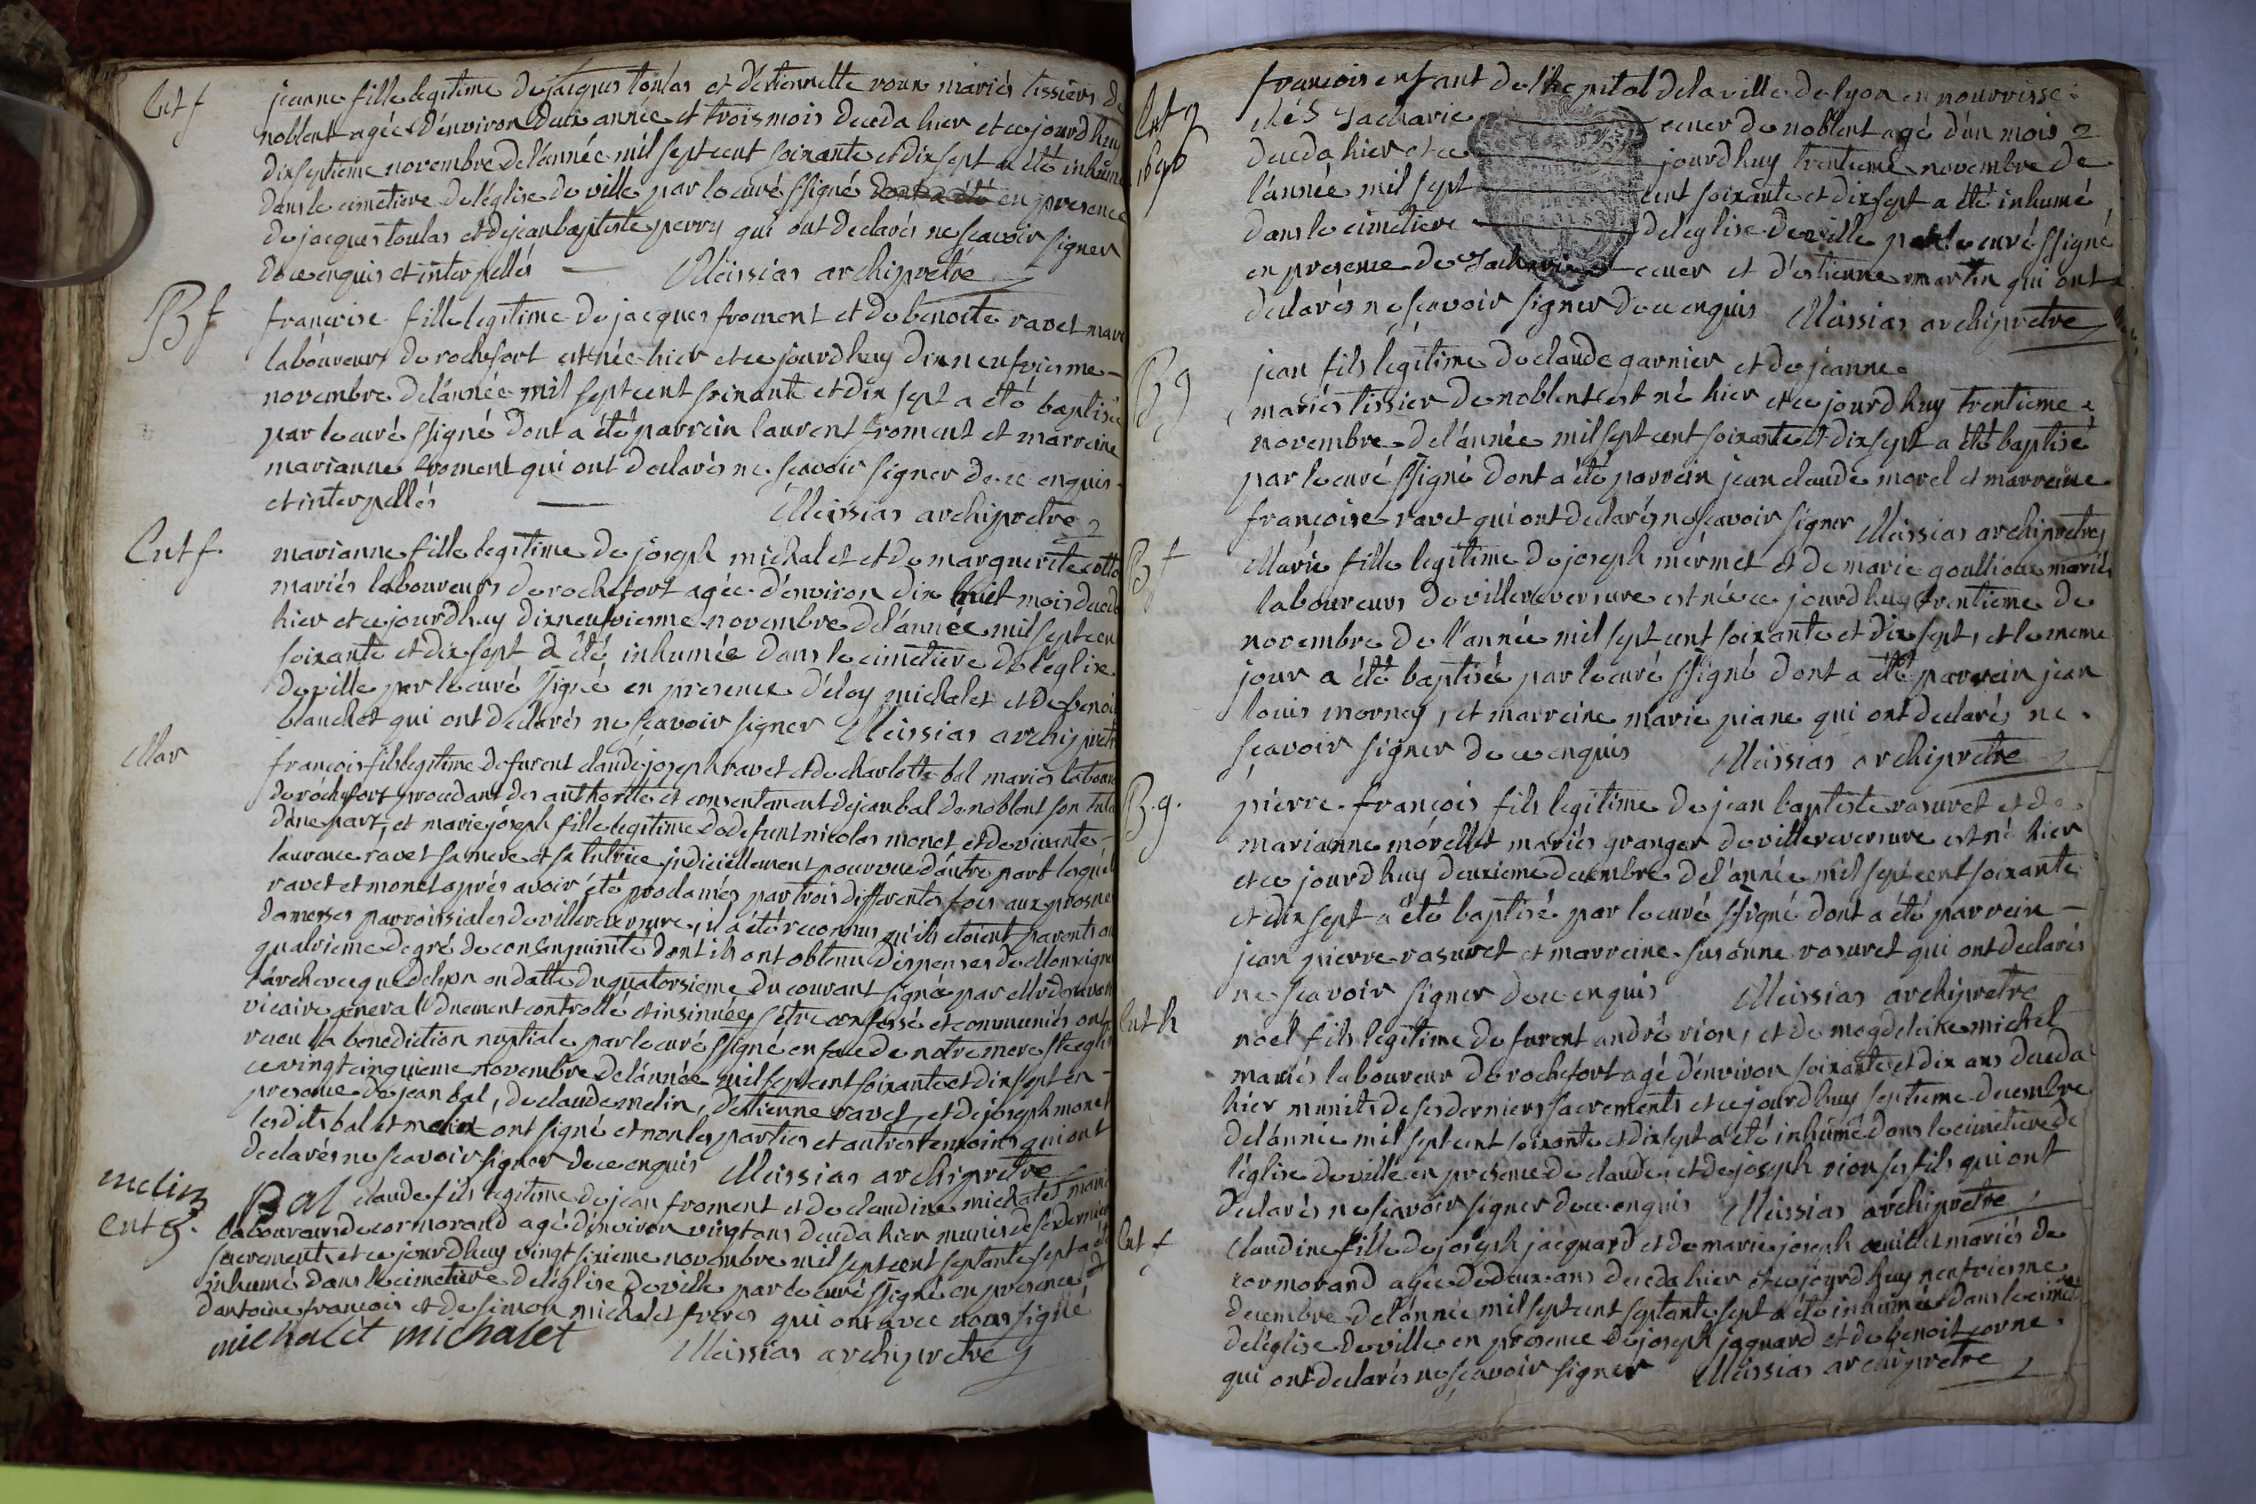 Ent f
jeanne fille legitime de jacques toulas et d'etiennette roux mariés tissiers de
noblent agée d'environ deux année et trois mois deceda hier et ce jourd'huy
dixseptieme novembre de l'année mil sept cent soixante et dix sept a été inhumé
dans le cimetiere de l'église de ville par le curé ssigné dont a été en presence
de jacques toulas et de jean baptiste perry qui ont declarés ne scavoir signer
de ce enquis et interpellés Messias archipretre
B f
francoise fille legitime de jacques froment et de benoite ravet mari
laboureurs de rochefort est née hier et ce jourd'huy dixneufviesme
novembre de l'année mil sept cent soixante et dix sept a été baptisée
par le curé ssigné dont a été parrein laurent froment et marreine
marianne froment qui ont declarés ne scavoir signer de ce enquis
et interpellés Messias archipretre
Ent f.
marianne fille legitime de joseph michalet et de marguerite
mariés laboureurs de rochefort agée d'environ dix huit mois deceda
hier et ce jourd'huy dixneufvieme novembre de l'année mil sept cen
soixante et dix sept a été inhumée dans le cimetiere de l'eglise
de ville par le curé ssigné en presence d'eloy michalet et de benoi
blanchet qui ont declarés ne scavoir signer Messias archipretre
Mar
francois fils legitime de furent claude joseph ravet et de charlotte bal mariés labour
de rochefort procedant des authorité et consentement de jean bal de noblent son tut
d'une part, et marie joseph fille legitime de defunt nicolas monet, et de vivante
laurence ravet sa mere et sa tutrice judiciellement pourvue d'autre part lesquels
ravet et monet aprés avoir été proclamés par trois differentes fois aux prosnes
de messes parroissiales de villereversure, il a été reconnus qu'ils etoient parents au
quatrieme degré de consenguinité dont ils ont obtenu dispenses de Monseigneur
l'archeveque de lyon en datte du quatorsieme du courant signée par Mr de
vicaire general duement controllé et insinnuée s'etre confessé et communiés ont
receu la benediction nuptiale par le curé ssigné en face de notre mere ste eglise
ce vingt cinquieme novembre de l'année mil sept cent soixante et dix sept en
presence de jean bal, de claude melin, d'etienne ravet, et de joseph monet
les dits bal et melin ont signé et non les parties et autres temoins qui ont
declarés ne scavoir signer de ce enquis Messias archipretre
melin Bal
Ent g.
claude fils legitime de jean froment et de claudine michalet marié
laboureurs de cormorand agé d'environ vingt ans deceda hier munis de ses dernier
sacrements et ce jourd'huy vingt sixieme novembre mil sept cent septante sept a été
inhumé dans le cimetiere de l'église de ville par le curé ssigné en presence
d'antoine francois et de simon michalet freres qui ont avec nous signé
michalet michalet Messias archipretre
Ent g
francois enfant de l'hopital de la ville de lyon en nourrisse
chés Zacharie cuner de noblent agé d'un mois
deceda hier et ce jourd'huy trentieme novembre de
l'année mil sept cent soixante et dix sept a été inhumé
dans le cimetiere de l'église de ville par le curé ssigné
en presence de Zacharie cuner et d'estienne martin qui ont
declarés ne scavoir signer de ce enquis Messias archipretre
B g
jean fils legitime de claude garnier et de jeanne
mariés tissier de noblent est né hier et ce jourd'huy trentieme
novembre de l'année mil sept cent soixante et dix sept a été baptisé
par le curé ssigné dont a été parrein jean claude morel et marreine
francoise ravet qui ont declarés ne scavoir signer Messias archipretre
B f
Marie fille legitime de joseph mermet et de marie goullioux mariés
laboureurs de villereversure est née ce jourd'huy trentieme de
novembre de l'année mil sept cent soixante et dix sept, et le meme
jour a été baptisée par le curé ssigné dont a été parrein jean
louis mornay, et marreine marie piane qui ont declarés ne
scavoir signer de ce enquis Messias archipretre
B. g.
pierre francois fils legitime de jean baptiste rasuret et de
marianne morellet mariés granger de villereversure est né hier
et ce jourd'huy deuxieme decembre de l'année mil sept cent soixante
et dix sept a été baptisé par le curé ssigné dont a été parrein
jean pierre rasuret et marreine susanne rasuret qui ont declarés
ne scavoir signer de ce enquis Messias archipretre
Ent h
noel fils legitime de furent andré rion, et de magdeleine michel
mariés laboureur de rochefort agé d'environ soixante et dix ans deceda
hier munits de ses derniers sacrements et ce jourd'huy septieme decembre
de l'année mil sept cent soixante et dix sept a été inhumé dans le cimetiere de
l'église de ville en presence de claude, et de joseph rion ses fils qui ont
declarés ne scavoir signer de ce enquis Messias archipretre
Ent f
claudine fille de joseph jacquard et de marie joseph mariés de
cormorand agée de deux ans deceda hier et ce jourd'huy neufviesme
decembre de l'année mil sept cent septante sept a été inhumée dans le cimet
de l'église de ville en presence de joseph jaquard et de benoit corne
qui ont declarés ne scavoir signer Messias archipretre